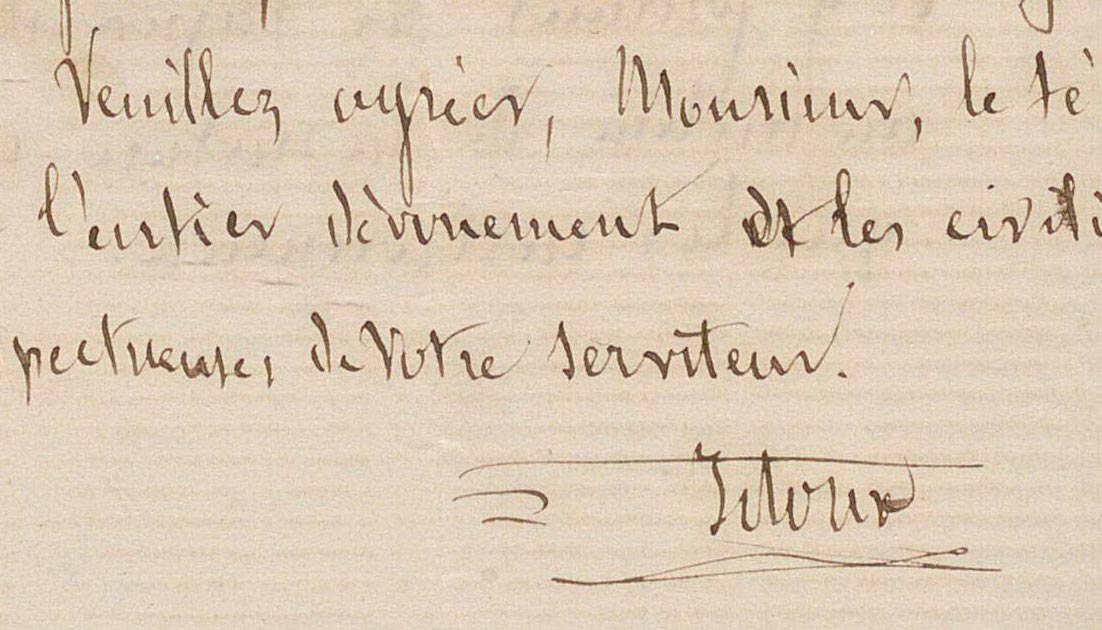 Veuillez agréer, Monsieur, le té
l'entier dévouement et les civili
pectueuses de Votre serviteur.